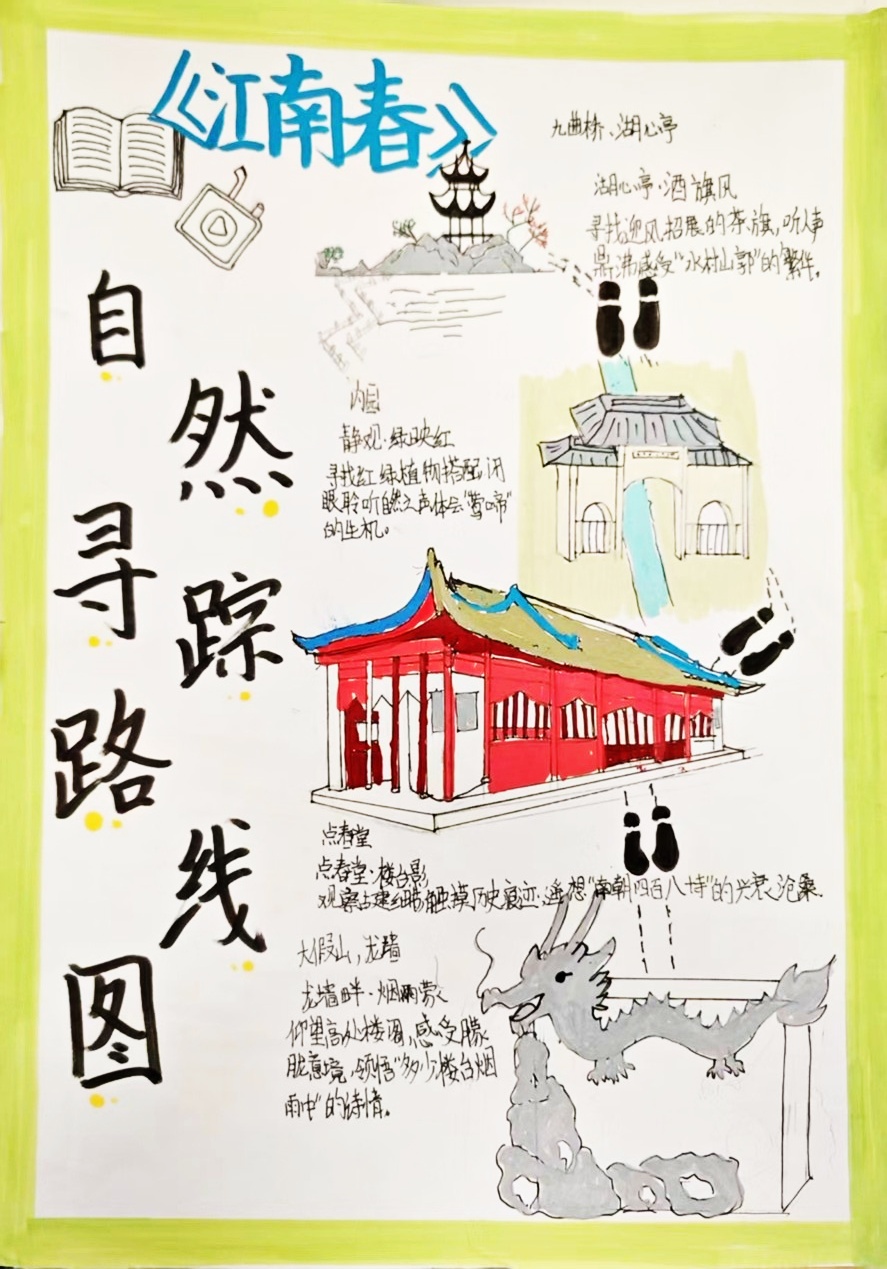 《江南春》
自然寻踪路线图
九曲桥、湖心亭
湖心亭·酒旗风
寻找迎风招展的茶旗，听人声
鼎沸感受“水村山郭”的繁华。
内园
静观·绿映红
寻找红绿植物搭配，闭
眼聆听自然之声体会“莺啼”
的生机。
点春堂
点春堂·楼台影
观察古建细节触摸历史痕迹，遥想“南朝四百八十寺”的兴衰沧桑。
大假山，龙墙
龙墙畔·烟雨蒙
仰望高处楼阁，感受朦
胧意境，领悟“多少楼台烟
雨中”的诗情。